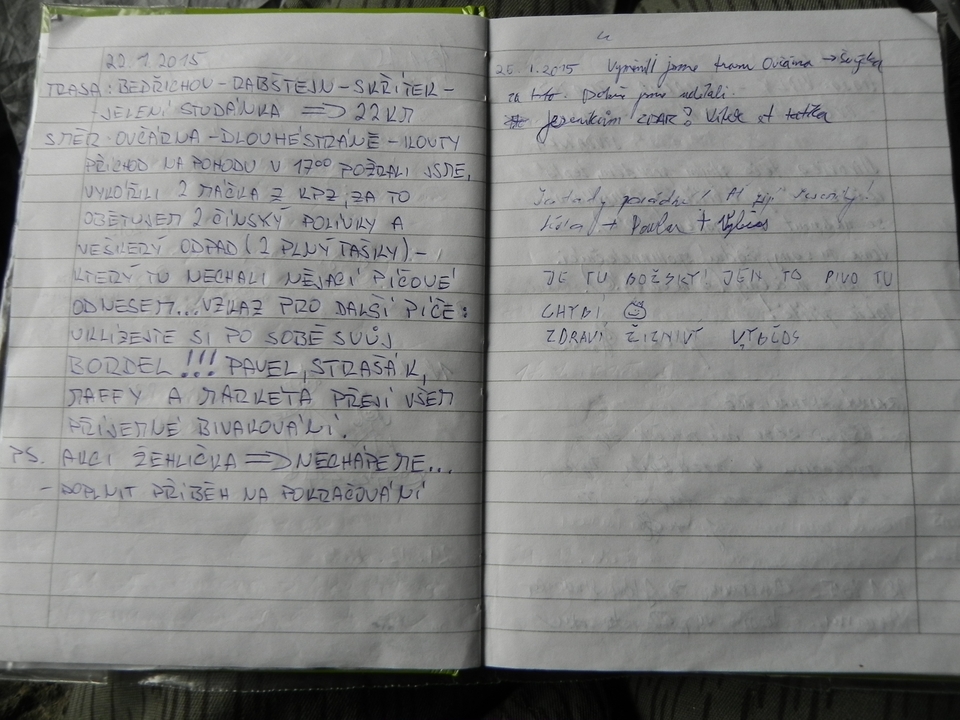 22.1.2015
TRASA: BEDŘICHOV - RABŠTEJN - SKŘÍTEK -
- JELENÍ STUDÁNKA => 22 KM
SMĚR OVČÁRNA - DLOUHÉ STRÁNĚ - KOUTY
PŘÍCHOD NA POHODU V 17⁰⁰ POŽRALI JSME,
VYKOŘILI 2 MÁČKA Z KPZ, ZA TO
OBĚTUJEM 2 ČÍNSKÝ POLÍVKY A
VEŠKERÝ ODPAD (2 PLNÝ TAŠKY) -
KTERÝ TU NECHALI NĚJACÍ PÍČOVÉ
ODNESEM... VZKAZ PRO DALŠÍ PÍČE:
UKLIZEJTE SI PO SOBĚ SVŮJ
BORDEL !!! PAVEL, STRAŠÁK,
MAFFY A MARKÉTA PŘEJÍ VŠEM
PŘÍJEMNÉ BIVAKOVÁNÍ.
PS. AKCI ŽEHLIČKA => NECHÁPEME...
- DOPLNIT PŘÍBĚH NA POKRAČOVÁNÍ
25.1.2015 Vyměnili jsme trasu Ovčárna ->
za . Dobře jsme udělali.
Jeseníkům ZDAR!
! Ať žijí Jeseníky!
+ Pavla +
JE TU BOŽSKÝ! JEN TO PIVO TU
CHYBÍ
ZDRAVÍ ŽÍZNIVÝ